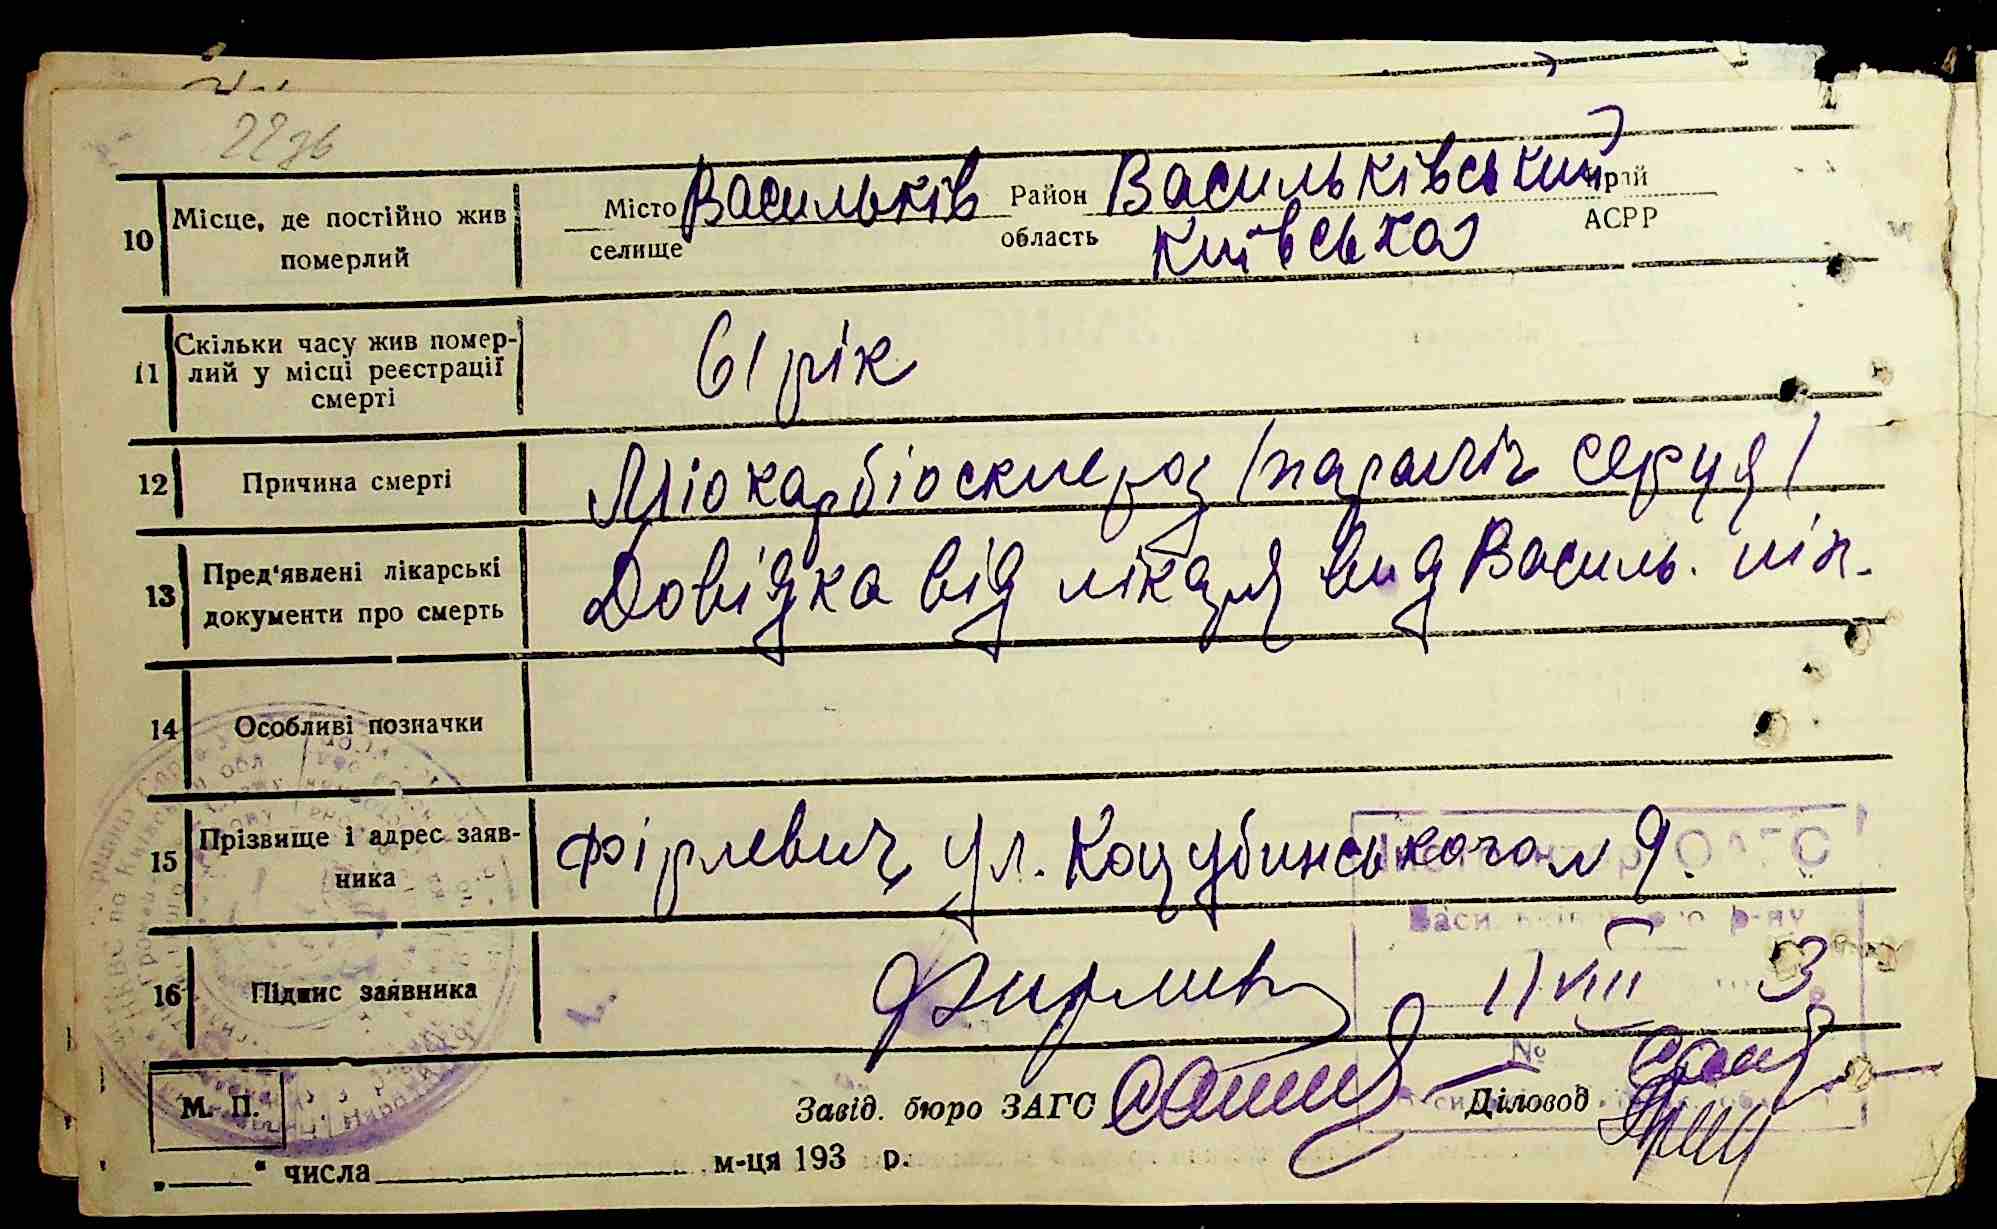 10 Місце, де постійно жив померлий
Місто Васильків Район Васильківський край
селище область Київська АСРР
11 Скільки часу жив помер-
лий у місці реєстрації
смерті
61 рік
12 Причина смерті
Міокардіосклероз /параліч серця/
13 Пред'явлені лікарські
документи про смерть
Довідка від лікаря вид Василь. лік.
14 Особливі позначки
15 Прізвище і адрес заяв-
ника
Фірлевич, ул. Коцубинського 9.
16 Підпис заявника
11 VIII 3
М. П.
Завід. бюро ЗАГС Діловод
„ “ числа м-ця 193 р.